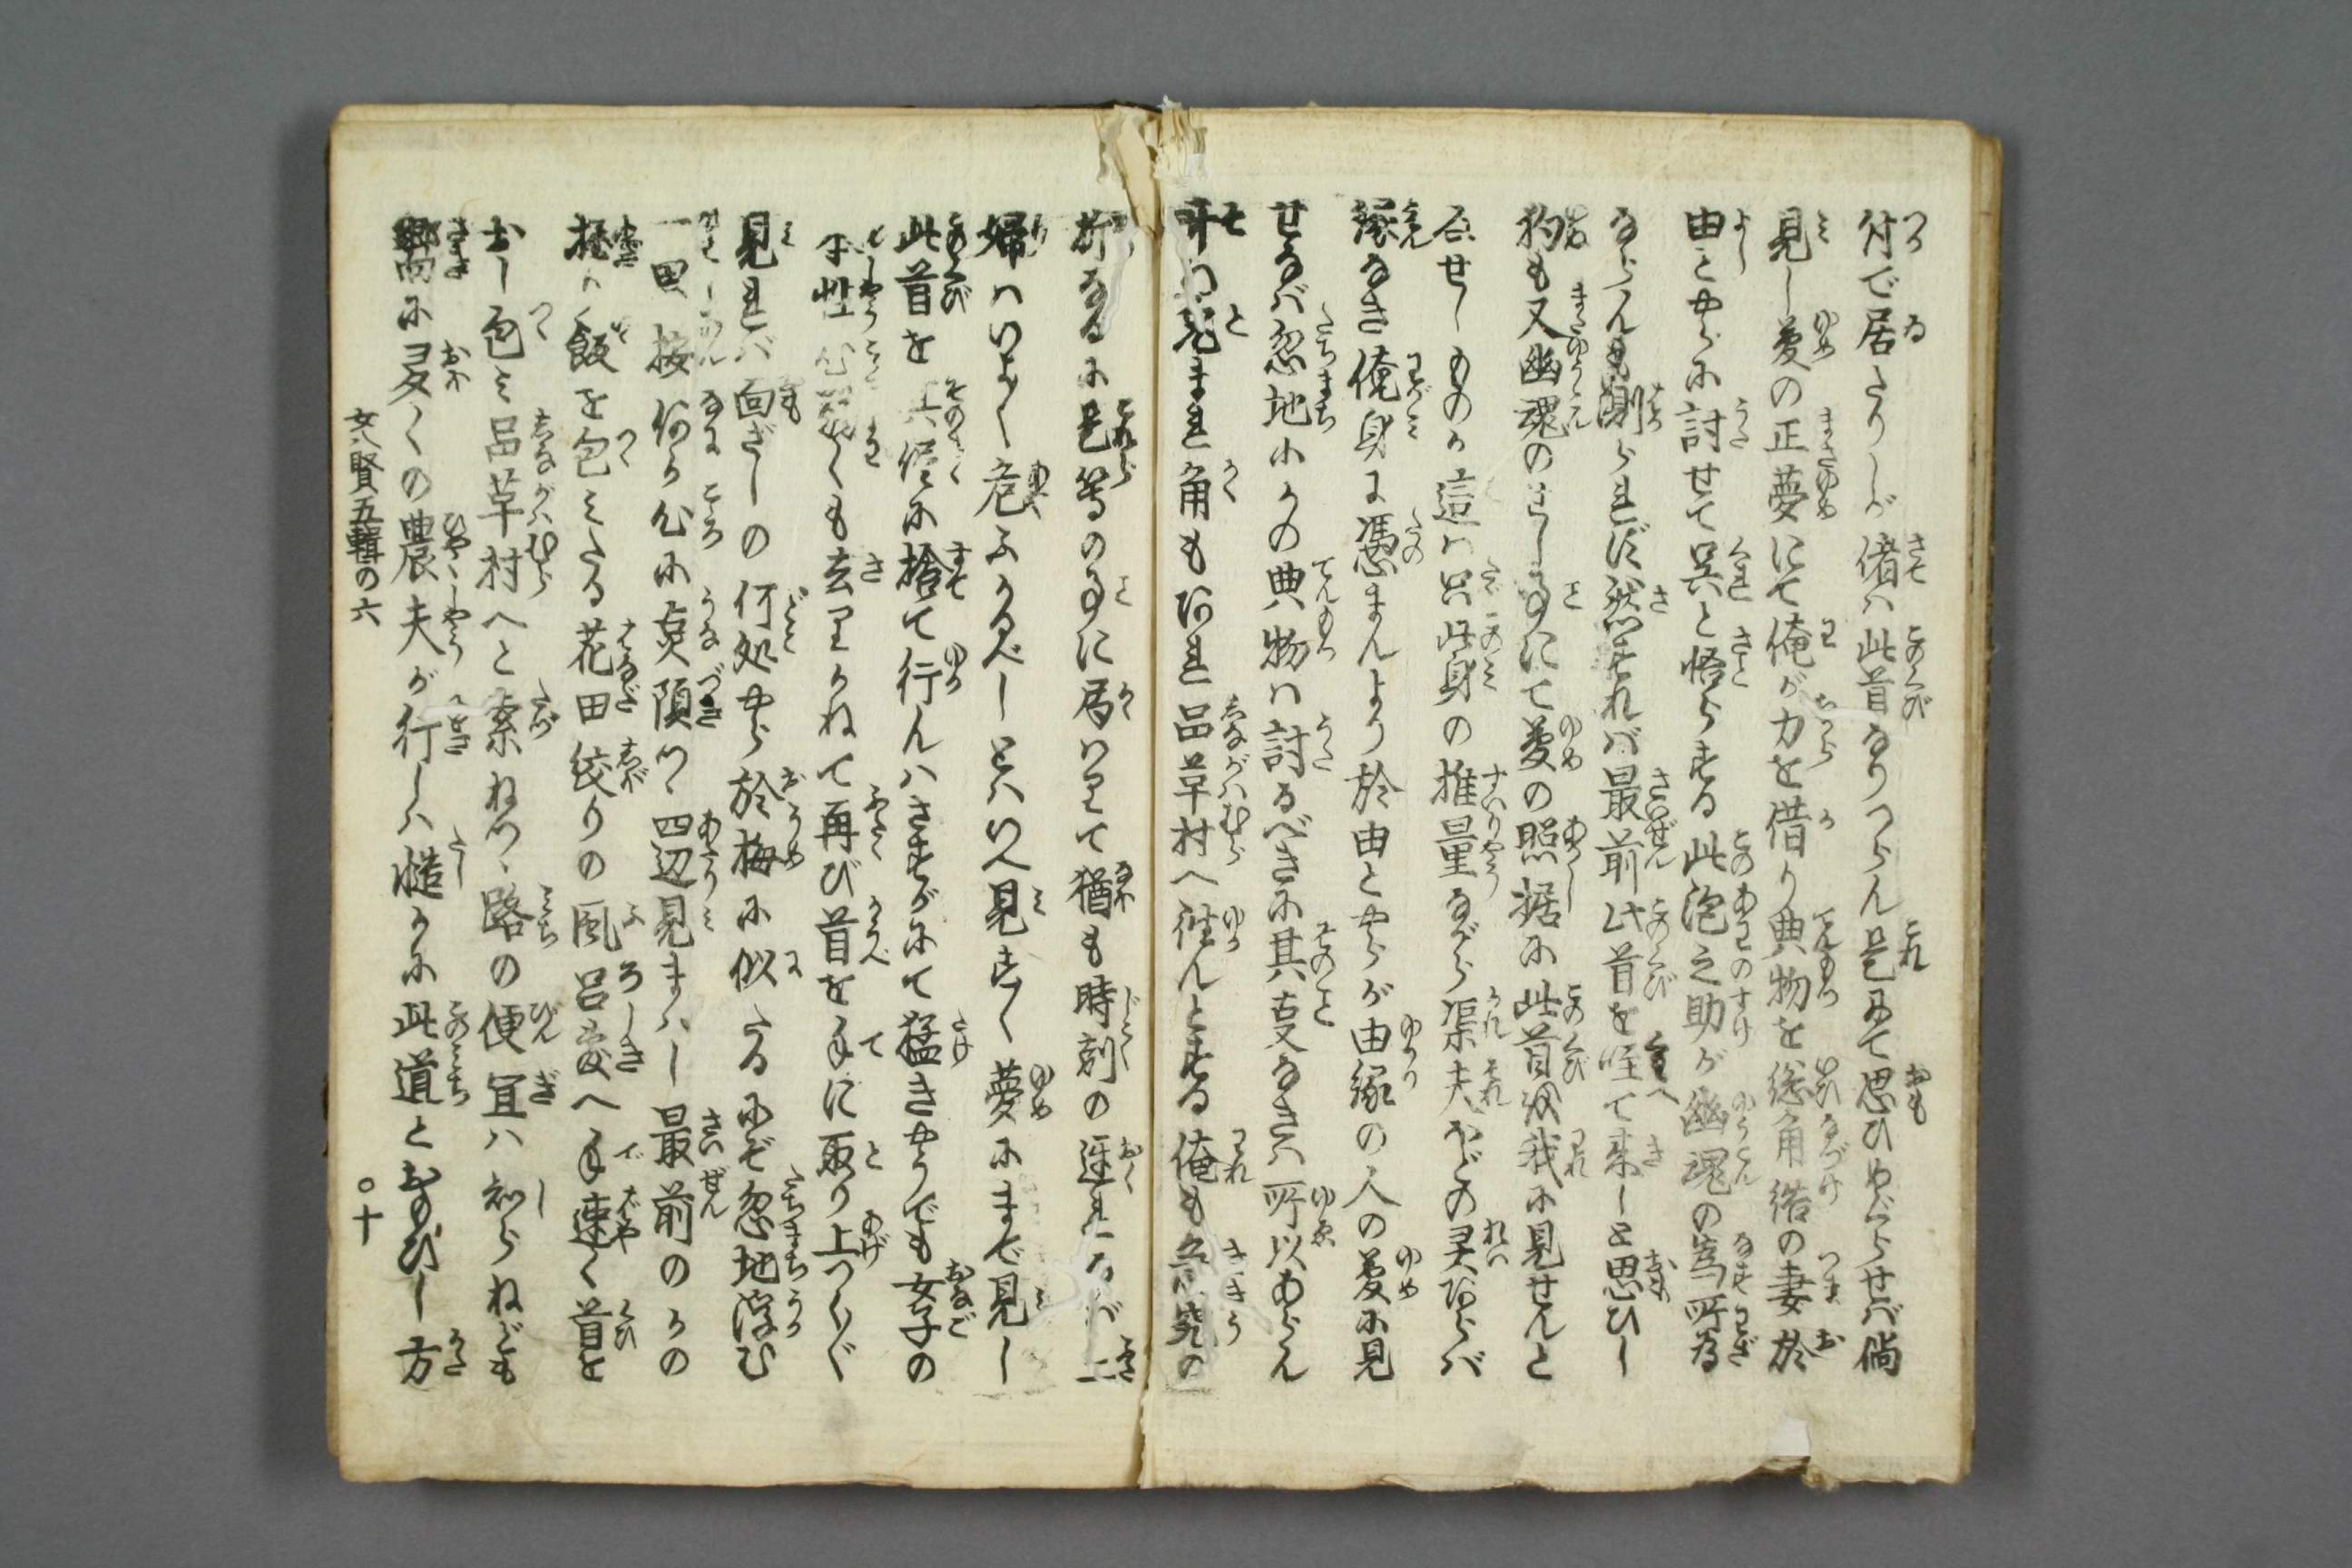 付で居たりしが偖ハ此首なりつらん是にて思ひめぐらせバ倘
見し夢の正夢にて俺が力を借り典物を総角結の妻於
由とやらに討せて呉と悟らする此泡之助が幽魂の為所為
ならんも測られず然すれバ最前此首を咥て来しと思ひし
狗も又幽魂のせし事にて夢の照据に此首を我に見せんと
せしものか這ハ只此身の推量ながら渠夫ほどの灵あらバ
縁なき俺身に憑まんより於由とやらが由縁の人の夢に見
せなバ忽地にかの典物ハ討るべきに其事なきハ所以あらん
まれ角もあれ品草村へ往んとする俺も
斯なるに是等の事に局はりて猶も時刻の遅れなバ
婦ハいよ〱危ふかるべしとハいへ見す〱夢にまで見し
此首を其侭に捨て行んハさすがにて猛きやうでも女子の
本性心弱くも去りかねて再び首を手に取り上つく〲
見れバ面ざしの何処やら於梅に似たるにぞ忽地浮む
一思按何か心に点頭つゝ四辺見まハし最前のかの
飯を包みたる花田絞りの風呂敷へ手速く首を
おし包み品草村へと索ねつゝ路の便宜ハ知らねども
嚮に多くの農夫が行しハ慥かに此道とおのびし方
女八賢五輯の六
○十